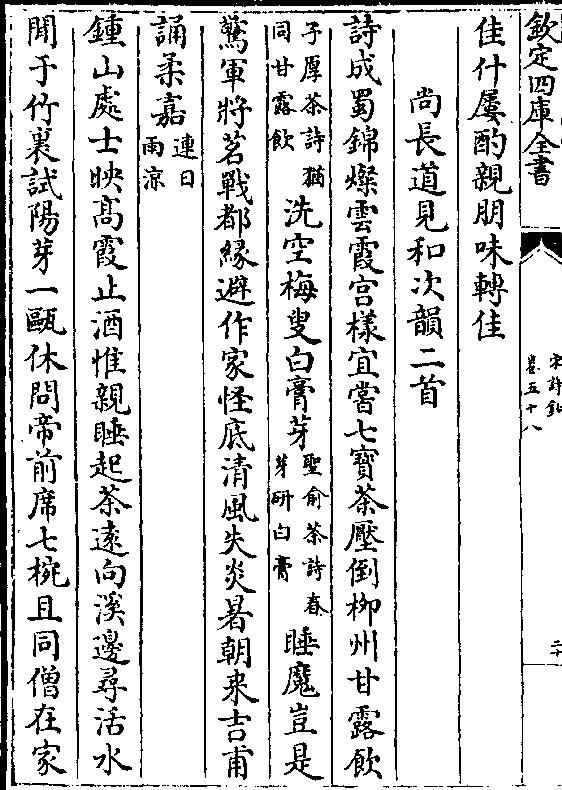 欽定四庫全書
宋詩鈔
卷五十八
二十
佳什屢酌親朋味轉佳
尚長道見和次韻二首
詩成蜀錦燦雲霞宫樣宜嘗七寳茶壓倒柳州甘露飲
子厚茶詩猶
同甘露飲
洗空梅叟白膏芽
聖俞茶詩春
芽研白膏
睡魔豈是
驚軍將茗戰都緣避作家怪底清風失炎暑朝来吉甫
誦柔嘉
連日
雨涼
鍾山處士映髙霞止酒惟親睡起茶逺向溪邊尋活水
閒于竹裏試陽芽一甌休問帝前席七椀且同僧在家